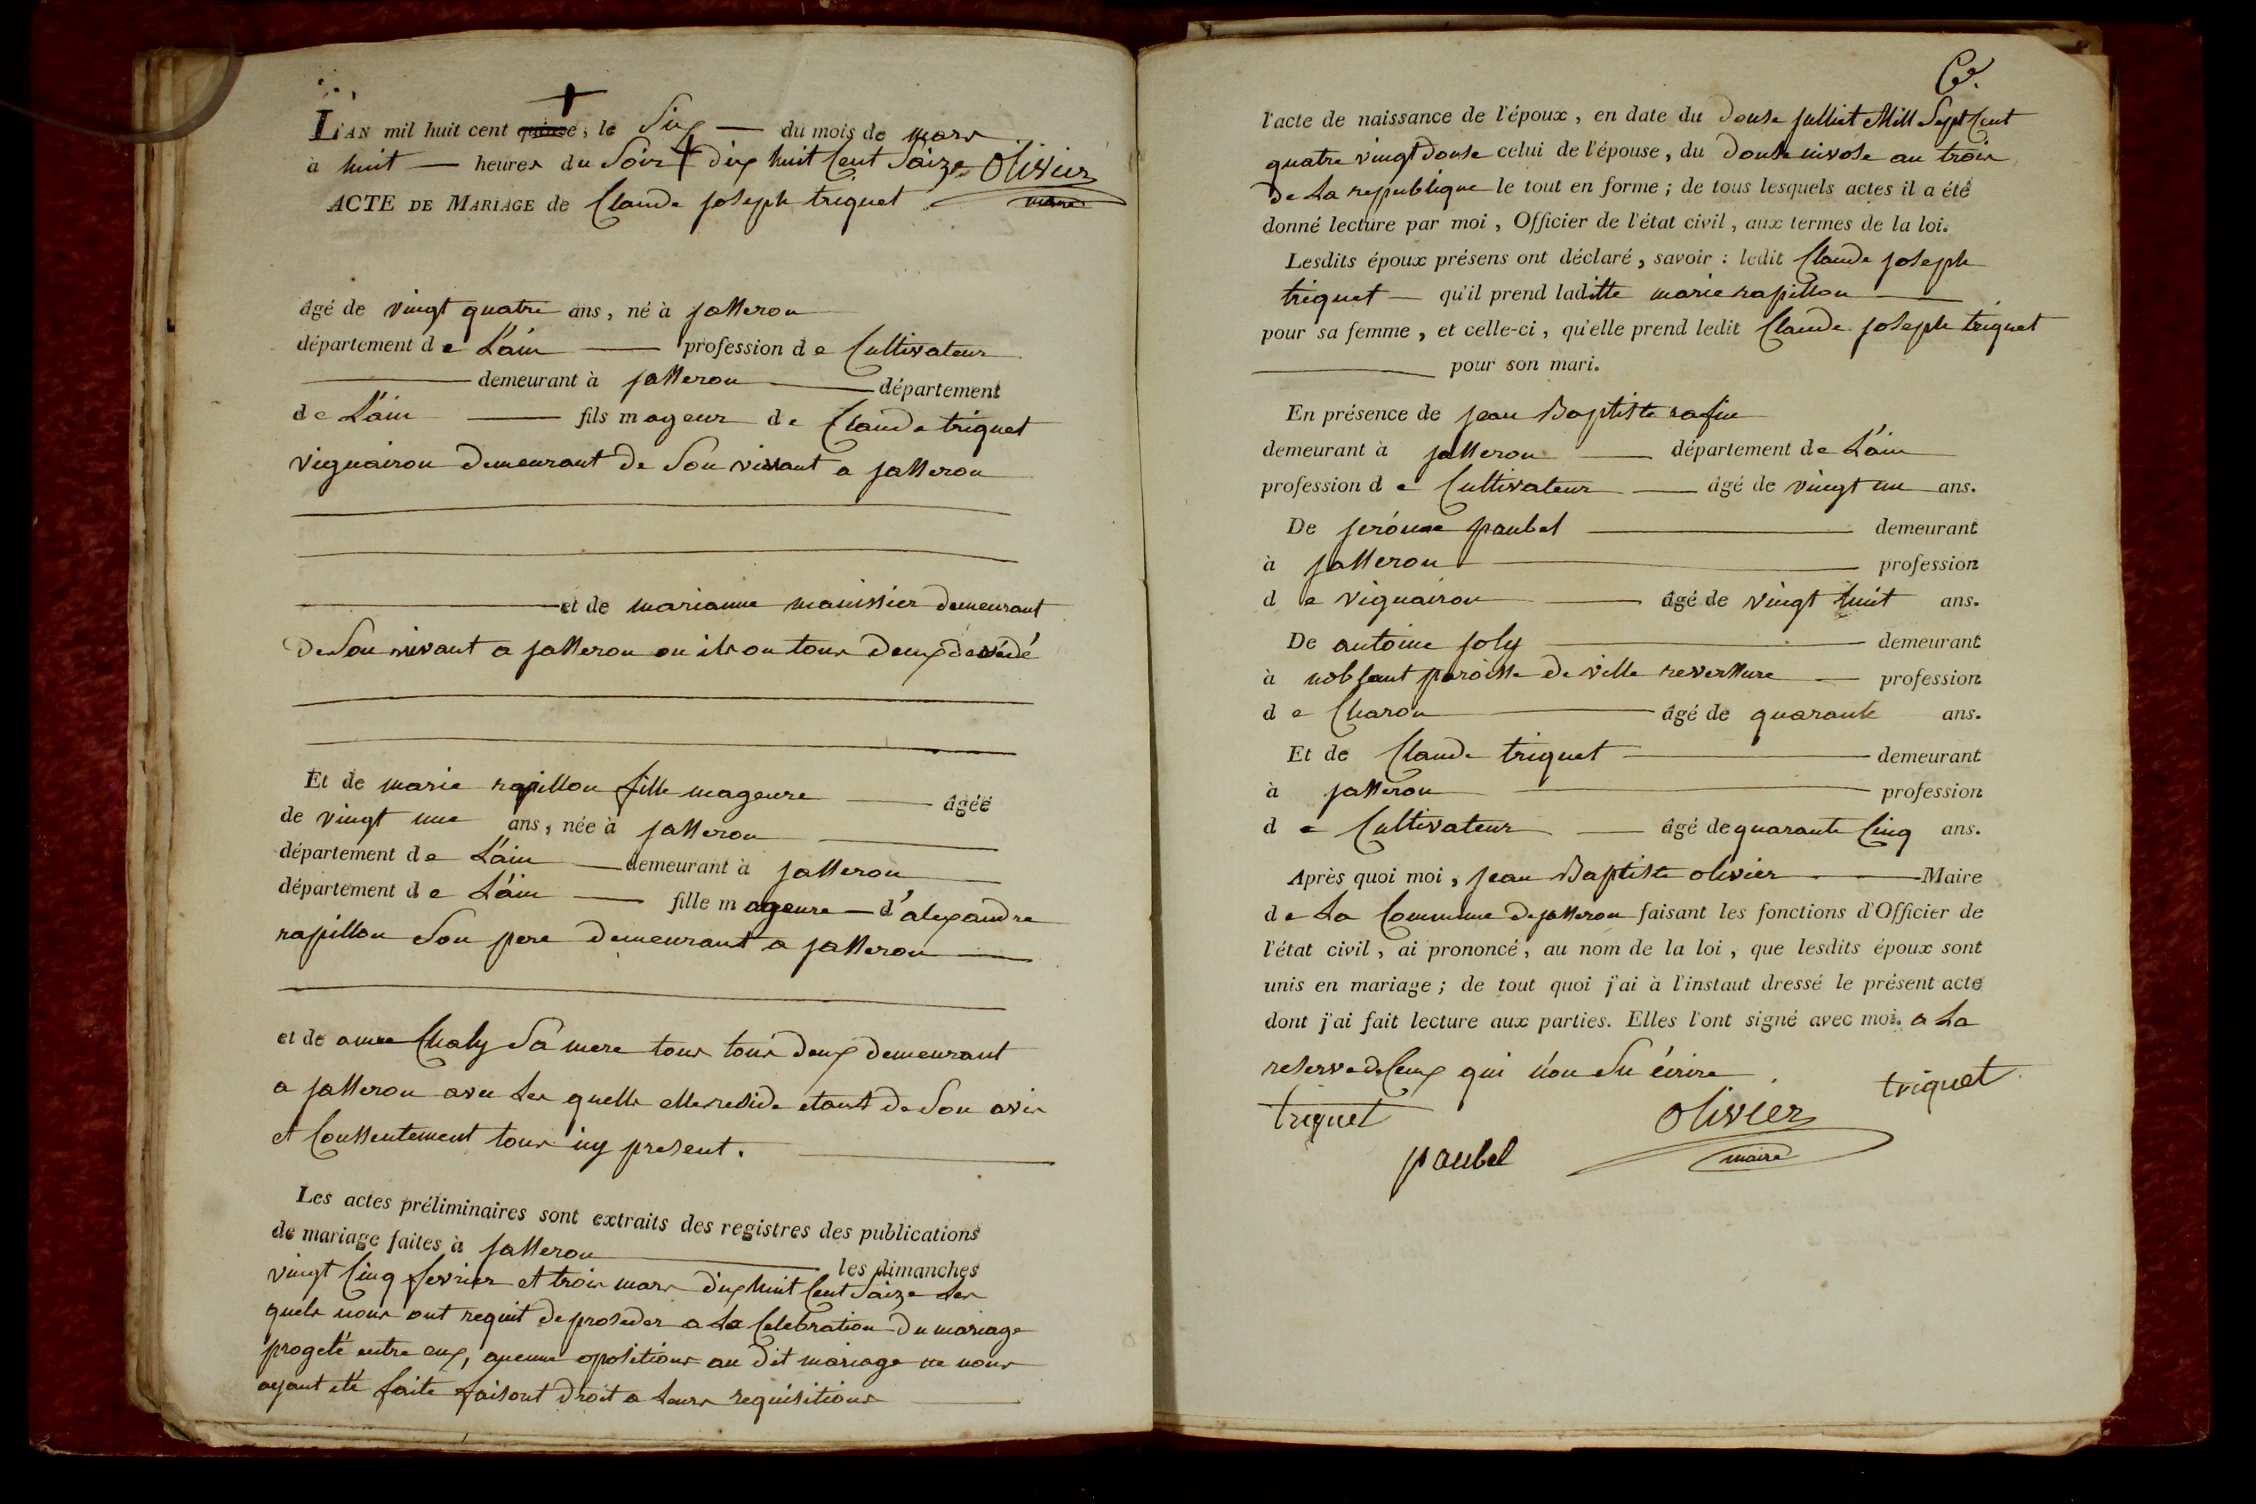 L'AN mil huit cent quinze, le Six — du mois de mars
à huit — heures du Soir + dix huit Cent Saize Olivier
maire
ACTE DE MARIAGE de Claude joseph triquet
âgé de vingt quatre ans, né à jasseron
département de L'ain — profession de Cultivateur
— demeurant à jasseron — département
de L'ain — fils mageur de Claude triquet
viguairon demeurant de Son vivant a jasseron
— et de marianne manissier demeurant
de Son vivant a jasseron ou ils on tous deux décédé
Et de marie rapillon fille mageure — âgée
de vingt une ans, née à jasseron —
département de L'ain — demeurant à jasseron —
département de L'ain — fille mageure — d'alexandre
rapillon Son pere demeurant a jasseron —
et de anne Chaly Sa mere tous tous deux demeurant
a jasseron avec Les quelle elle reside etant de Son avis
et Conssentement tous icy present. —
Les actes préliminaires sont extraits des registres des publications
de mariage faites à jasseron — les dimanches
vingt Cinq fevrier et trois mars dix huit Cent Saize Les
quels nous ont requit de proseder a La Celebration du mariage
progeté entre eux, aucune opositions au dit mariage ne nous
ayant été faite faisant droit a Leurs requisitions —
l'acte de naissance de l'époux, en date du douse julliet Mill Sept Cent
quatre vingt douse celui de l'épouse, du douse nivose an trois
de La republique le tout en forme; de tous lesquels actes il a été
donné lecture par moi, Officier de l'état civil, aux termes de la loi.
Lesdits époux présens ont déclaré, savoir : ledit Claude joseph
triquet — qu'il prend laditte marie rapillon —
pour sa femme, et celle-ci, qu'elle prend ledit Claude joseph triquet
— pour son mari.
En présence de jean Baptiste rafin
demeurant à jasseron — département de L'ain
profession de Cultivateur — âgé de vingt un ans.
De jeróme paubel — demeurant
à jasseron — profession
de viguairon — âgé de vingt huit ans.
De antoine joly — demeurant
à nobsant paroisse de ville reverssure — profession
de Charon — âgé de quarante ans.
Et de Claude triquet — demeurant
à jasseron — profession
de Cultivateur — âgé de quarante Cinq ans.
Après quoi moi, jean Baptiste olivier — Maire
de La Commune de jasseron faisant les fonctions d'Officier de
l'état civil, ai prononcé, au nom de la loi, que lesdits époux sont
unis en mariage; de tout quoi j'ai à l'instant dressé le présent acte
dont j'ai fait lecture aux parties. Elles l'ont signé avec moi. a La
reserve de Ceux qui n'on Su écrire
triquet
triquet
olivier
maire
paubel